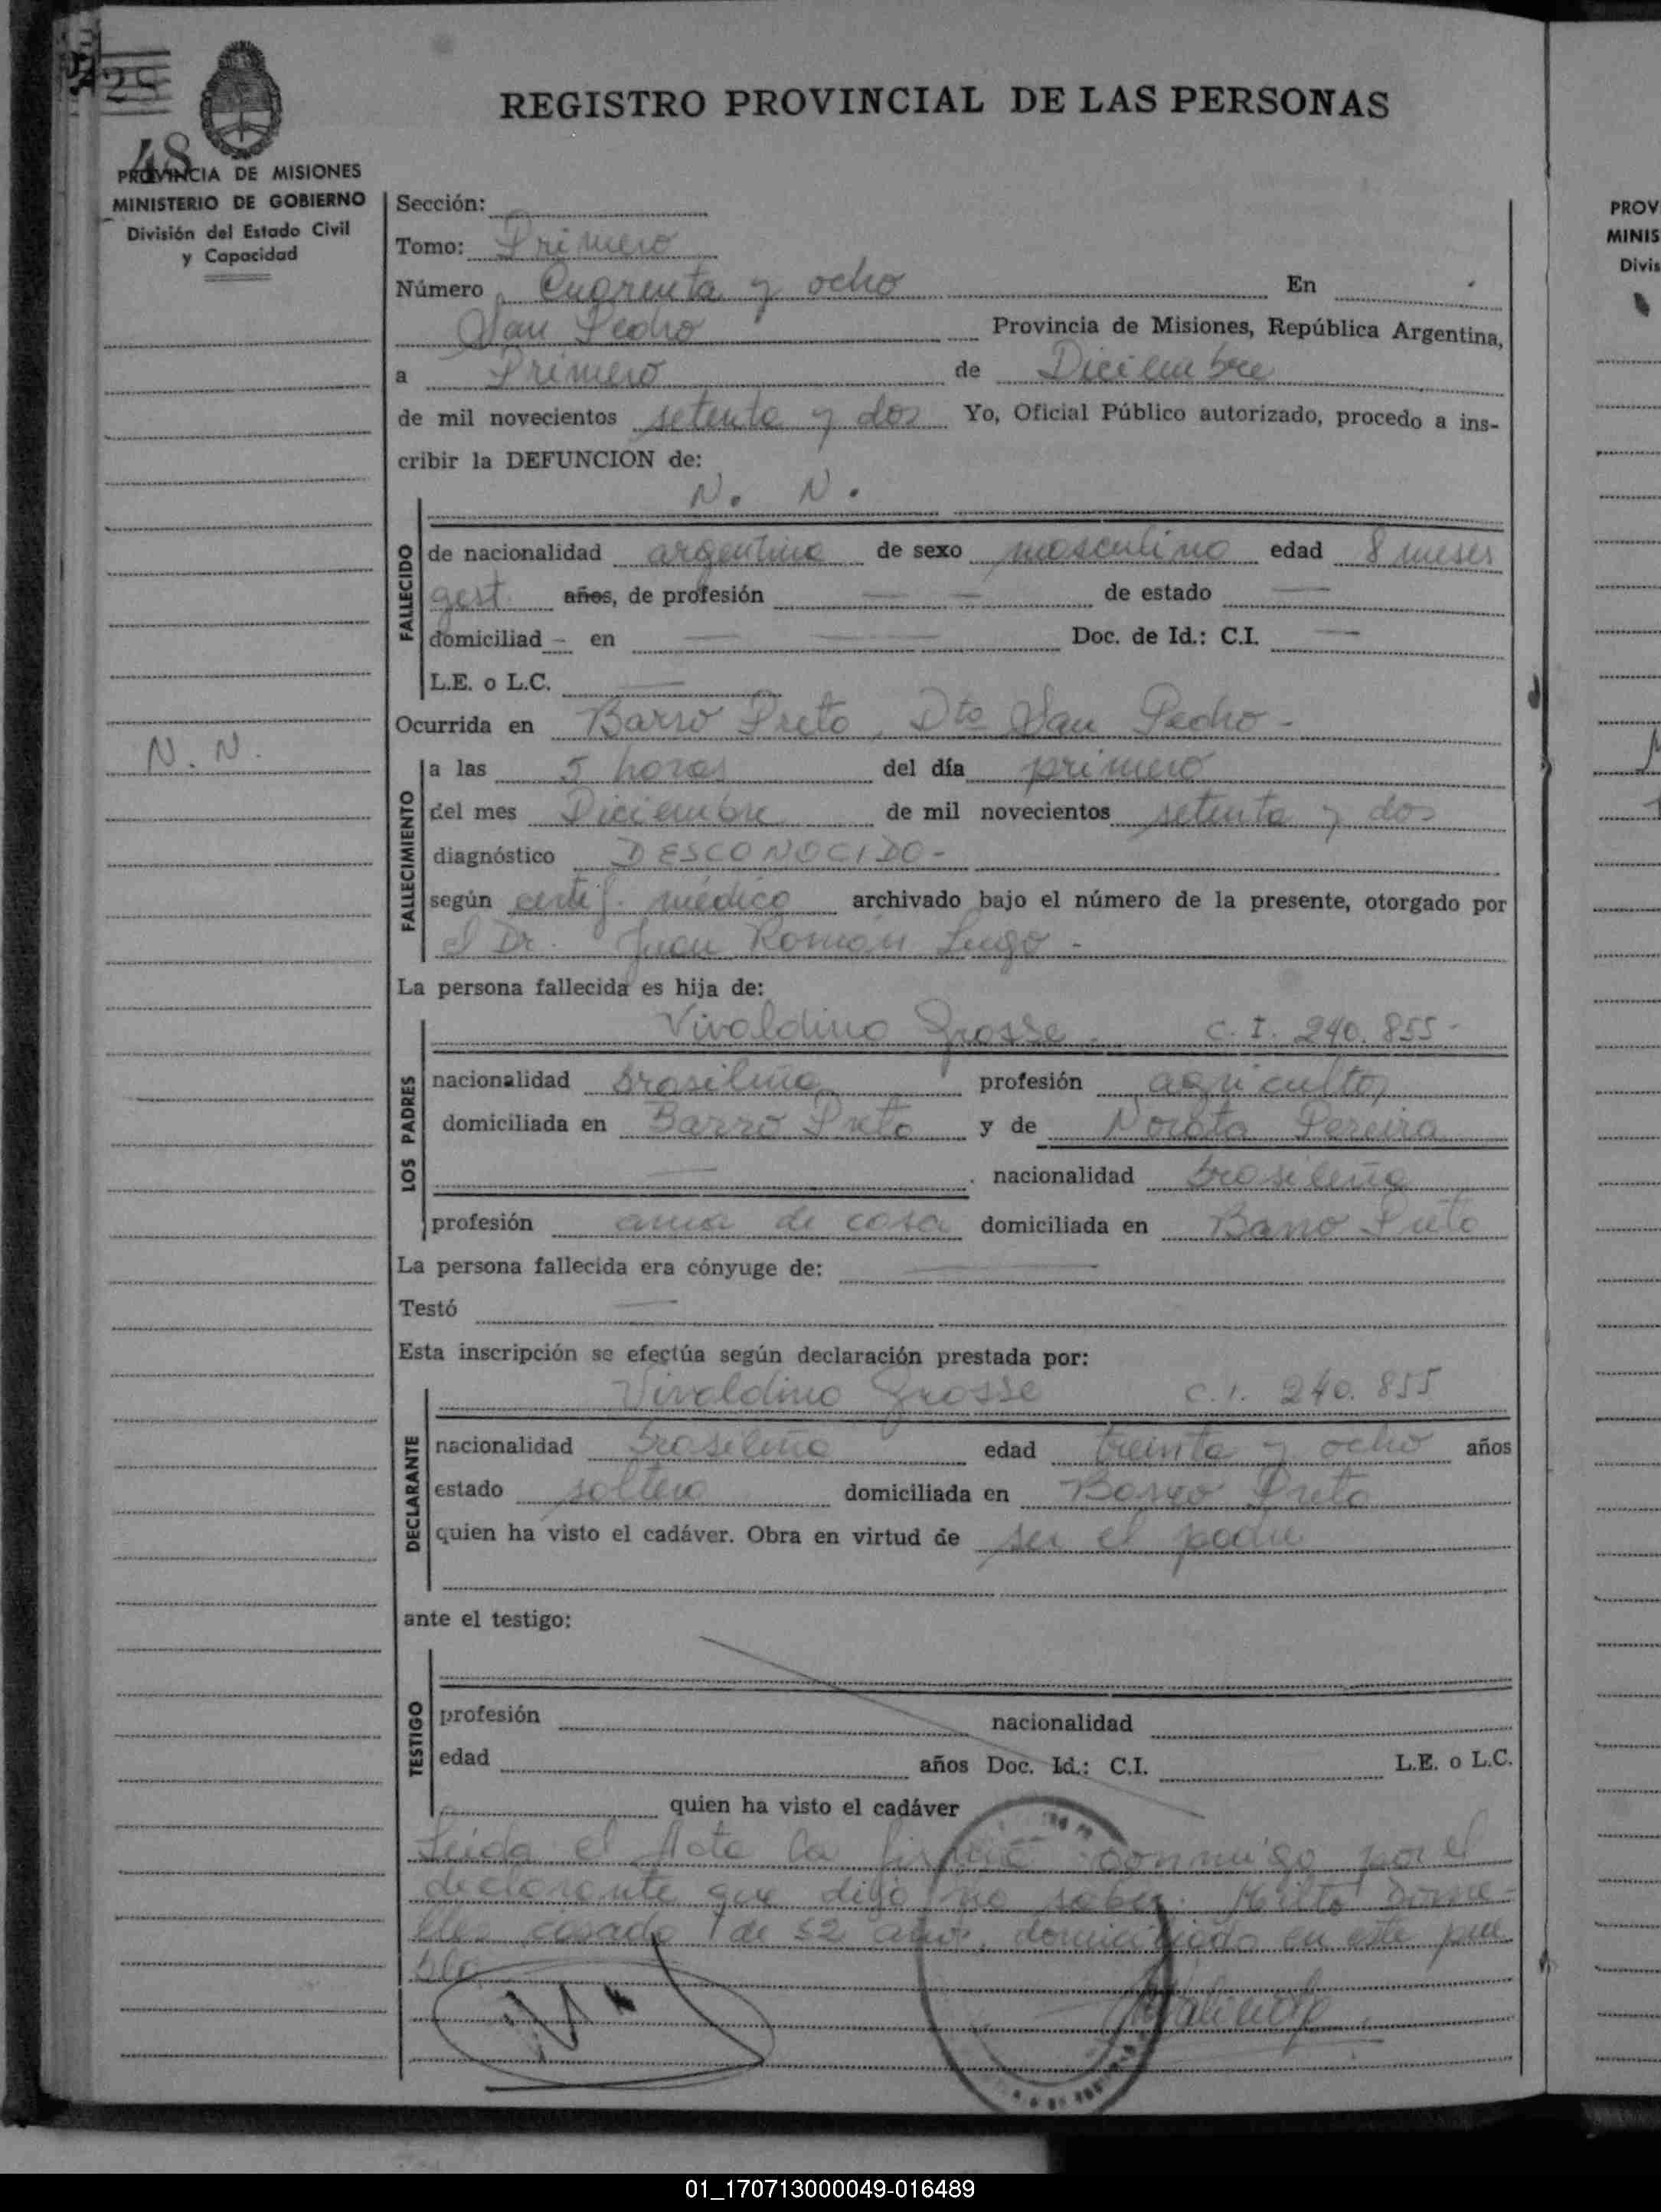 25
48
REGISTRO PROVINCIAL DE LAS PERSONAS
PROVINCIA DE MISIONES
MINISTERIO DE GOBIERNO
División del Estado Civil
y Capacidad
Sección:
Tomo: Primero
Número Cuarenta y ocho En
San Pedro Provincia de Misiones, República Argentina,
a Primero de Diciembre
de mil novecientos setenta y dos Yo, Oficial Público autorizado, procedo a ins-
cribir la DEFUNCION de:
N. N.
FALLECIDO
de nacionalidad argentina de sexo masculino edad 8 meses
gest. años, de profesión — — de estado —
domiciliad - en — — Doc. de Id.: C.I. —
L.E. o L.C. —
Ocurrida en Barro Preto, Dto San Pedro -
N. N.
FALLECIMIENTO
a las 5 horas del día primero
del mes Diciembre de mil novecientos setenta y dos
diagnóstico DESCONOCIDO-
según certif. médico archivado bajo el número de la presente, otorgado por
el Dr. Juan Román Lugo -
La persona fallecida es hija de:
LOS PADRES
Vivaldino Grosse - C. I. 240.855-
nacionalidad brasileña profesión agricultor
domiciliada en Barro Preto y de Pereira
— nacionalidad brasileña
profesión ama de casa domiciliada en Barro Preto
La persona fallecida era cónyuge de: —
Testó —
Esta inscripción se efectúa según declaración prestada por:
DECLARANTE
Vivaldino Grosse C.I. 240.855
nacionalidad brasileña edad treinta y ocho años
estado soltero domiciliada en Barro Preto
quien ha visto el cadáver. Obra en virtud de ser el padre
ante el testigo:
TESTIGO
profesión nacionalidad
edad años Doc. Id.: C.I. L.E. o L.C.
quien ha visto el cadáver
Leida el Acta la conmigo por el
declarante que dijo no saber
casado de 52 años, domiciliado en este pue
blo
PROV
MINIS
Divis
01_170713000049-016489